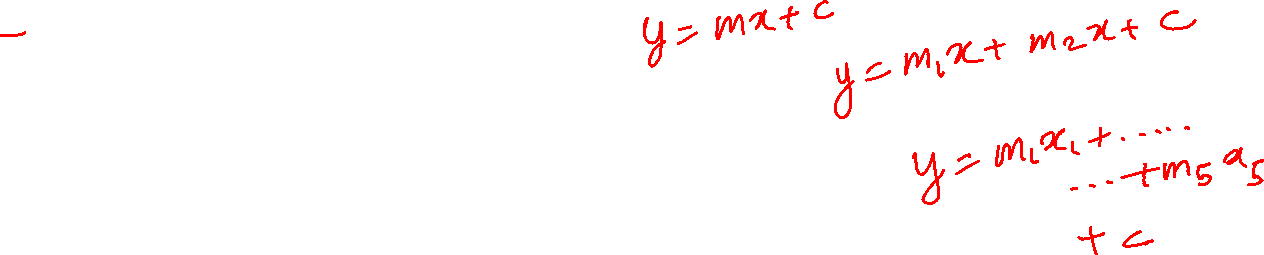 y = mx + c
y = m₁x + m₂x + c
y = m₁x₁ + .....
... + m₅ a₅
+ c